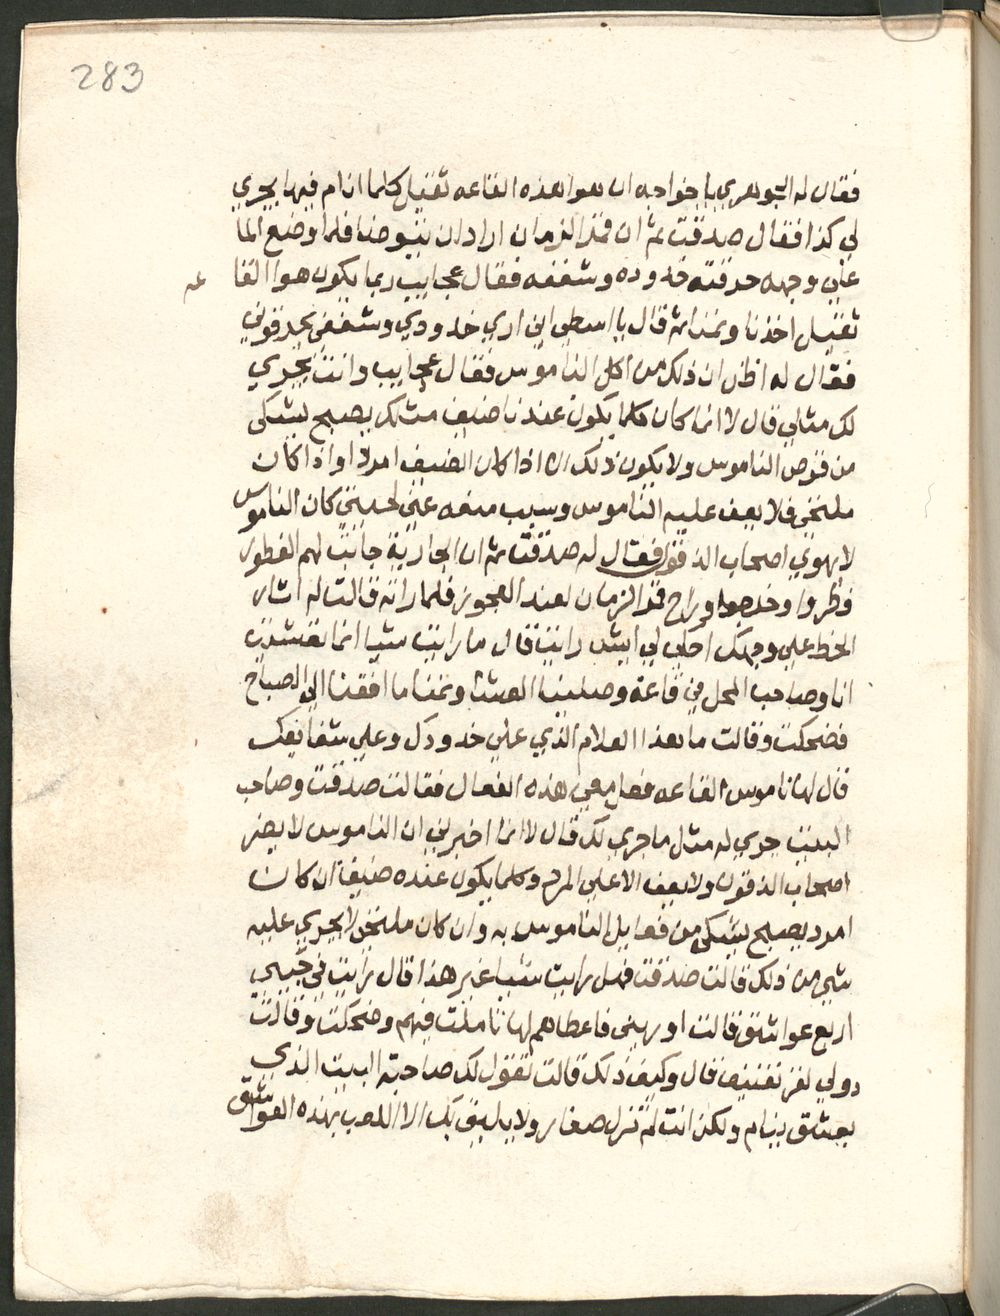 283
فقال له الجوهري يا خواجه ان هوا هذه القاعه ثقيل كلما انام فيها يجري
لي كذا فقال صدقت ثم ان قمر الزمان اراد ان يتوضا فلما وضع الما
علي وجهه حرقته خدوده وشففه فقال عجايب ربما يكون هوا القا
عه
ثقيل اخذنا ونمنا ثم قال يا اسطي اني اري خدودي وشففي يحرقوني
فقال له اظن ان ذلك من اكل الناموس فقال عجايب وانت يجري
لك مثلي قال لا انما كان كلما يكون عندنا ضيف مثلك يصبح يشكي
من قرص الناموس ولا يكون ذلك الا اذا كان الضيف امرد او اذا كان
ملتحي فلا يعف عليه الناموس وسبب منعه عني لحيتي كان الناموس
لا يهوي اصحاب الدقون فقال له صدقت ثم ان الجارية جابت لهم الفطور
فطروا وخرجوا وراح قمر الزمان لعند العجوز فلما راته قالت له اشار
الحظ علي وجهك احكي لي ايش رايت قال ما رايت شيا انما تعشيت
انا وصاحب المحل في قاعة وصلينا العشا ونمنا ما افقنا الي الصباح
فضحكت وقالت ما هذا العلام الذي علي خدودك وعلي شفايفك
قال لها ناموس القاعه فعل معي هذه الفعال فقالت صدقت وصاحب
البيت جري له مثل ما جري لك قال لا انما اخبرني ان الناموس لا يضر
اصحاب الدقون ولا يعف الا علي المرد وكلما يكون عنده ضيفا ان كان
امرد يصبح يشكي من فعايل الناموس به وان كان ملتحي لا يجري عليه
شي من ذلك قالت صدقت فهل رايت شيا غير هذا قال رايت في جيبي
اربع عواشق قالت اوريني فاعطاهم لها تاملت فيهم وضحكت وقالت
دولي لغز تعنيف قال وكيف ذلك قالت تقول لك صاحبة البيت الذي
يعشق ينام ولكن انت لم تزل صغار ولا يليق بك الا اللعب بهذه العواشق